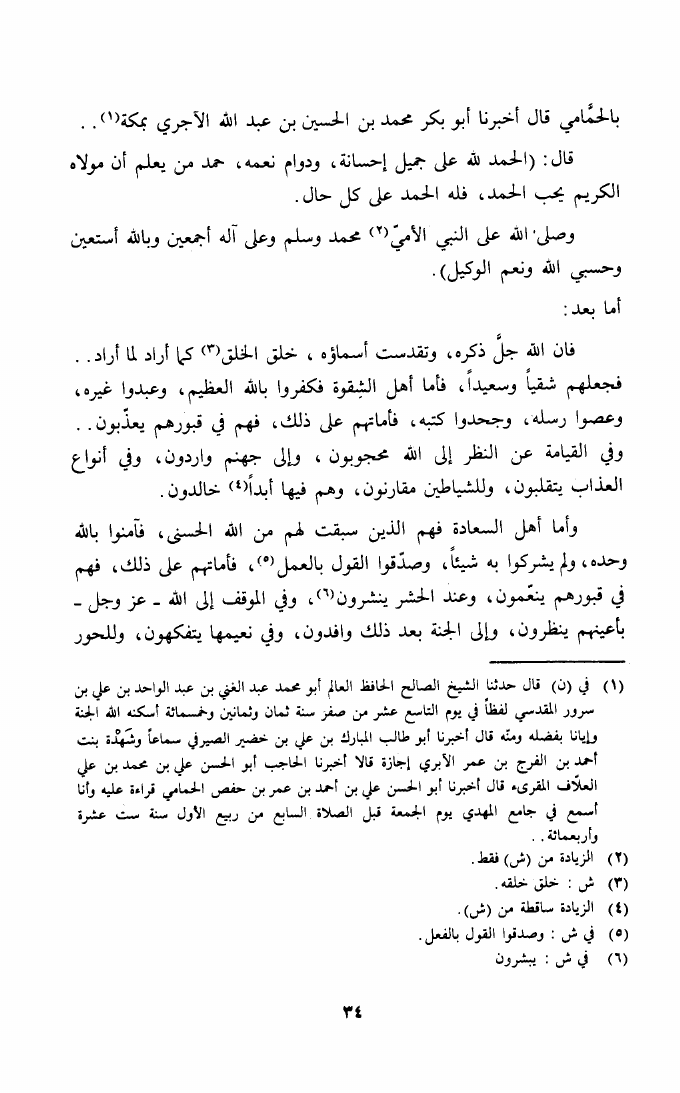 بالحمَّامي قال أخبرنا أبو بكر محمد بن الحسين بن عبد الله الآجري بمكة(١)..
قال: (الحمد لله على جميل إحسانة، ودوام نعمه، حمد من يعلم أن مولاه
الكريم يحب الحمد، فله الحمد على كل حال.
وصلى الله على النبي الأميّ(٢) محمد وسلم وعلى آله أجمعين وبالله أستعين
وحسبي الله ونعم الوكيل).
أما بعد:
فان الله جلَّ ذكره، وتقدست أسماؤه، خلق الخلق(٣) كما أراد لما أراد..
فجعلهم شقياً وسعيداً، فأما أهل الشِقوة فكفروا بالله العظيم، وعبدوا غيره،
وعصوا رسله، وجحدوا كتبه، فأماتهم على ذلك، فهم في قبورهم يعذّبون..
وفي القيامة عن النظر إلى الله محجوبون، وإلى جهنم واردون، وفي أنواع
العذاب يتقلبون، وللشياطين مقارنون، وهم فيها أبداً(٤) خالدون.
وأما أهل السعادة فهم الذين سبقت لهم من الله الحسنى، فآمنوا بالله
وحده، ولم يشركوا به شيئاً، وصدّقوا القول بالعمل(٥)، فأماتهم على ذلك، فهم
في قبورهم ينعّمون، وعند الحشر ينشرون(٦)، وفي الموقف إلى الله ـ عز وجل ـ
بأعينهم ينظرون، وإلى الجنة بعد ذلك وافدون، وفي نعيمها يتفكهون، وللحور
(١) في (ن) قال حدثنا الشيخ الصالح الحافظ العالم أبو محمد عبد الغني بن عبد الواحد بن علي بن
سرور المقدسي لفظاً في يوم التاسع عشر من صفر سنة ثمان وثمانين وخمسمائة أسكنه الله الجنة
وإيانا بفضله ومنّه قال أخبرنا أبو طالب المبارك بن علي بن خضير الصيرفي سماعاً وشَهْدة بنت
أحمد بن الفرج بن عمر الآبري إجازة قالا أخبرنا الحاجب أبو الحسن علي بن محمد بن علي
العلاّف المقرىء قال أخبرنا أبو الحسن علي بن أحمد بن عمر بن حفص الحمامي قراءة عليه وأنا
أسمع في جامع المهدي يوم الجمعة قبل الصلاة السابع من ربيع الأول سنة ست عشرة
وأربعمائة..
(٢) الزيادة من (ش) فقط.
(٣) ش : خلق خلقه.
(٤) الزيادة ساقطة من (ش).
(٥) في ش : وصدقوا القول بالفعل.
(٦) في ش : يبشرون
٣٤